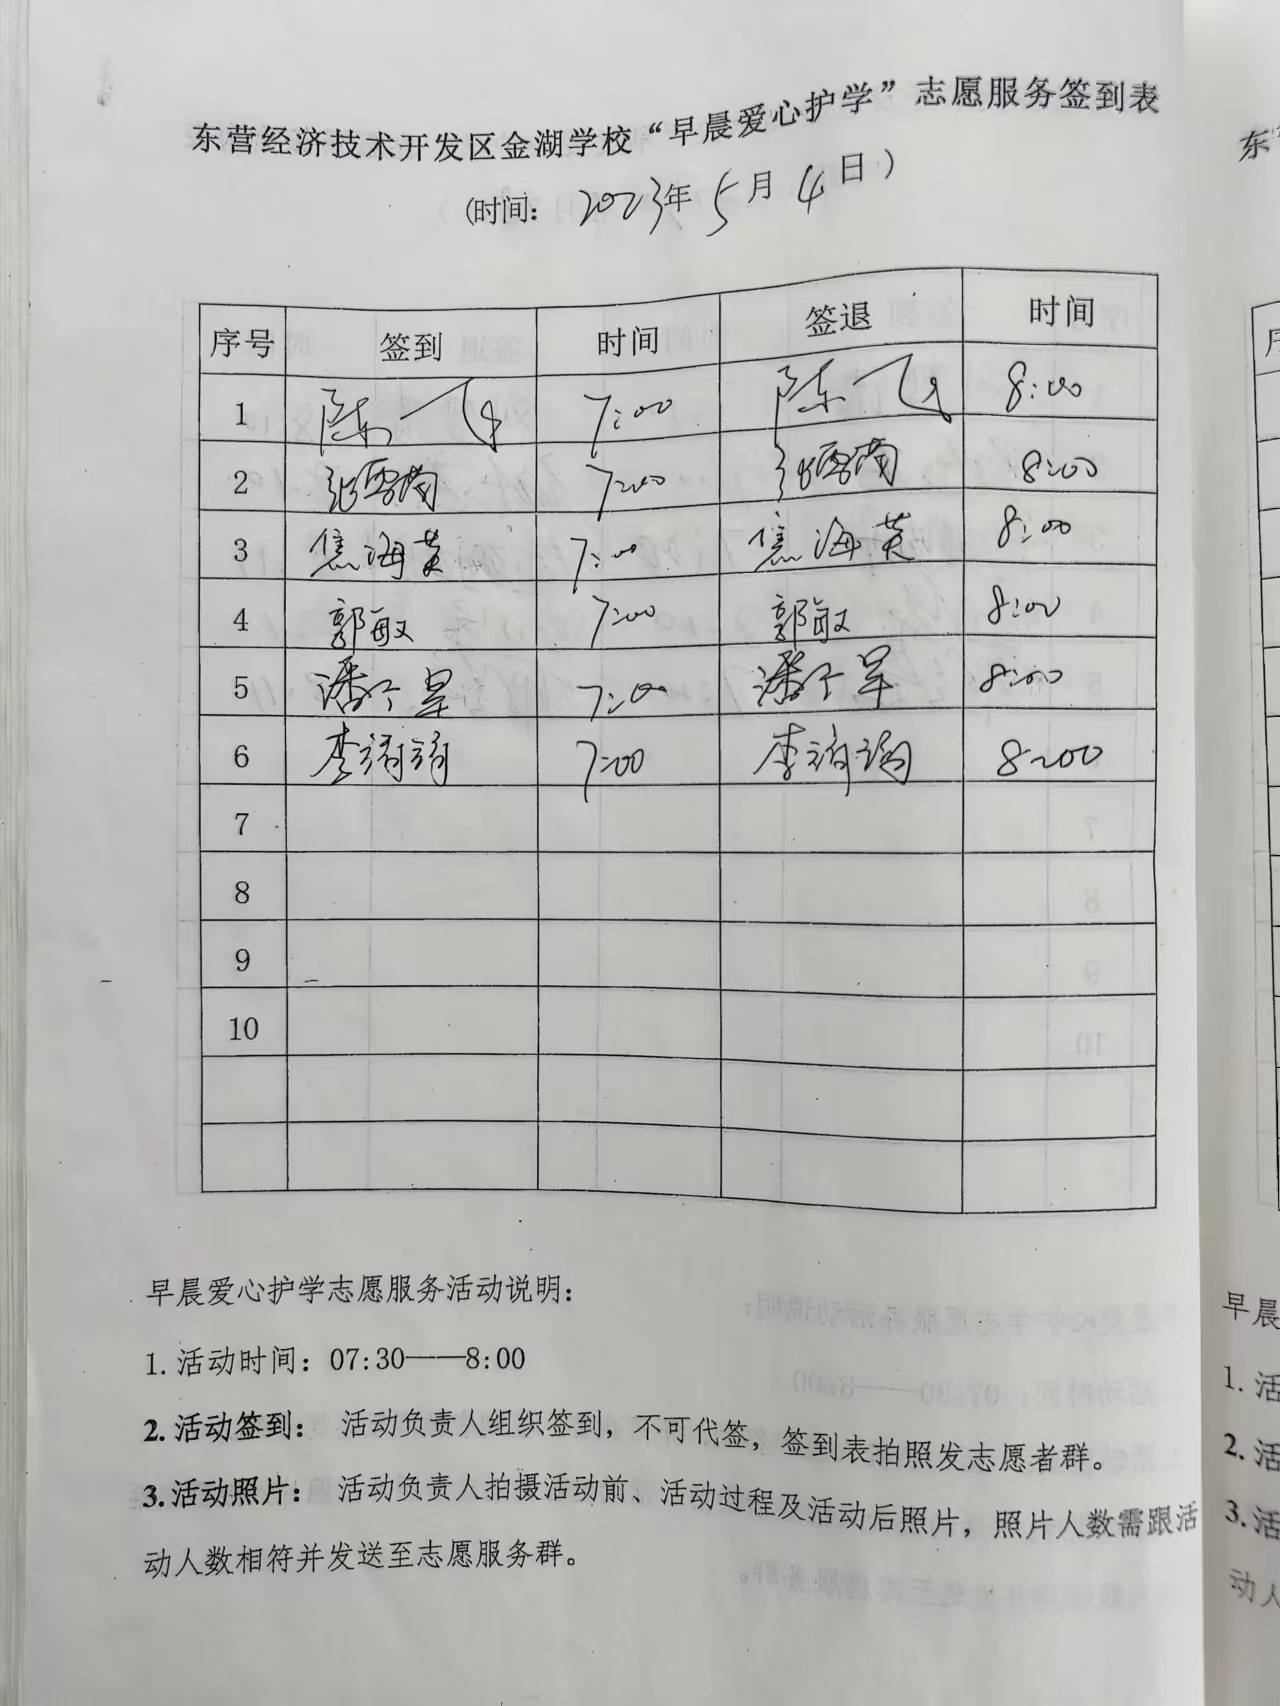 东营经济技术开发区金湖学校“早晨爱心护学”志愿服务签到表
(时间: 2023年5月4日)
序号 签到 时间 签退 时间
1 陈飞 7:00 陈飞 8:00
2 张雪菊 7:00 张雪菊 8:00
3 焦海英 7:00 焦海英 8:00
4 郭敏 7:00 郭敏 8:00
5 7:00 8:00
6 李靖靖 7:00 李靖靖 8:00
7
8
9
10
早晨爱心护学志愿服务活动说明:
1.活动时间: 07:30——8:00
2.活动签到: 活动负责人组织签到, 不可代签, 签到表拍照发志愿者群。
3.活动照片: 活动负责人拍摄活动前、活动过程及活动后照片, 照片人数需跟活
动人数相符并发送至志愿服务群。
东
序
早晨
1.活
2.活
3.活
动人